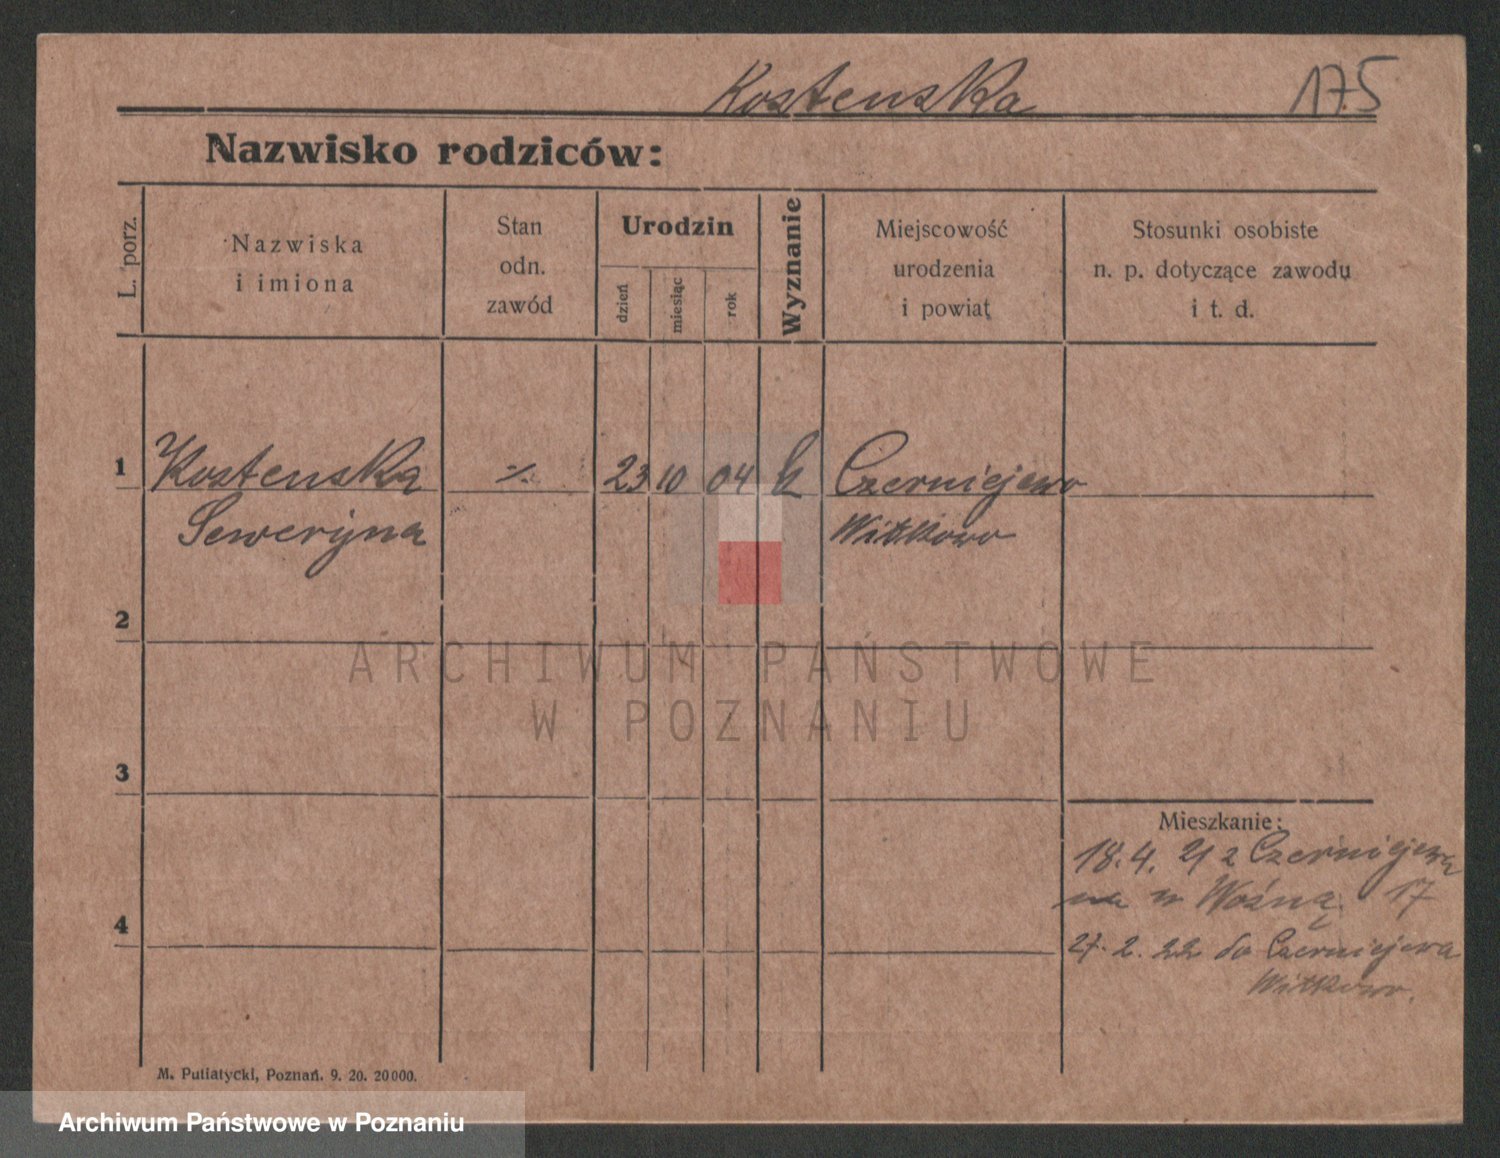 Kostenska 175
Nazwisko rodziców:
L. porz.
Nazwiska
i imiona
Stan
odn.
zawód
Urodzin
dzień
miesiąc
rok
Wyznanie
Miejscowość
urodzenia
i powiat
Stosunki osobiste
n. p. dotyczące zawodu
i t. d.
1 Kostenska ·/. 23 10 04 k Czerniejewo
Seweryna Witkowo
2
3
Mieszkanie:
18.4.21 z Czerniejewa
Woźna 17
4
27.2.22 do Czerniejewa
Witkowo.
M. Putiatycki, Poznań. 9. 20. 20000.
ARCHIWUM PAŃSTWOWE
W POZNANIU
Archiwum Państwowe w Poznaniu